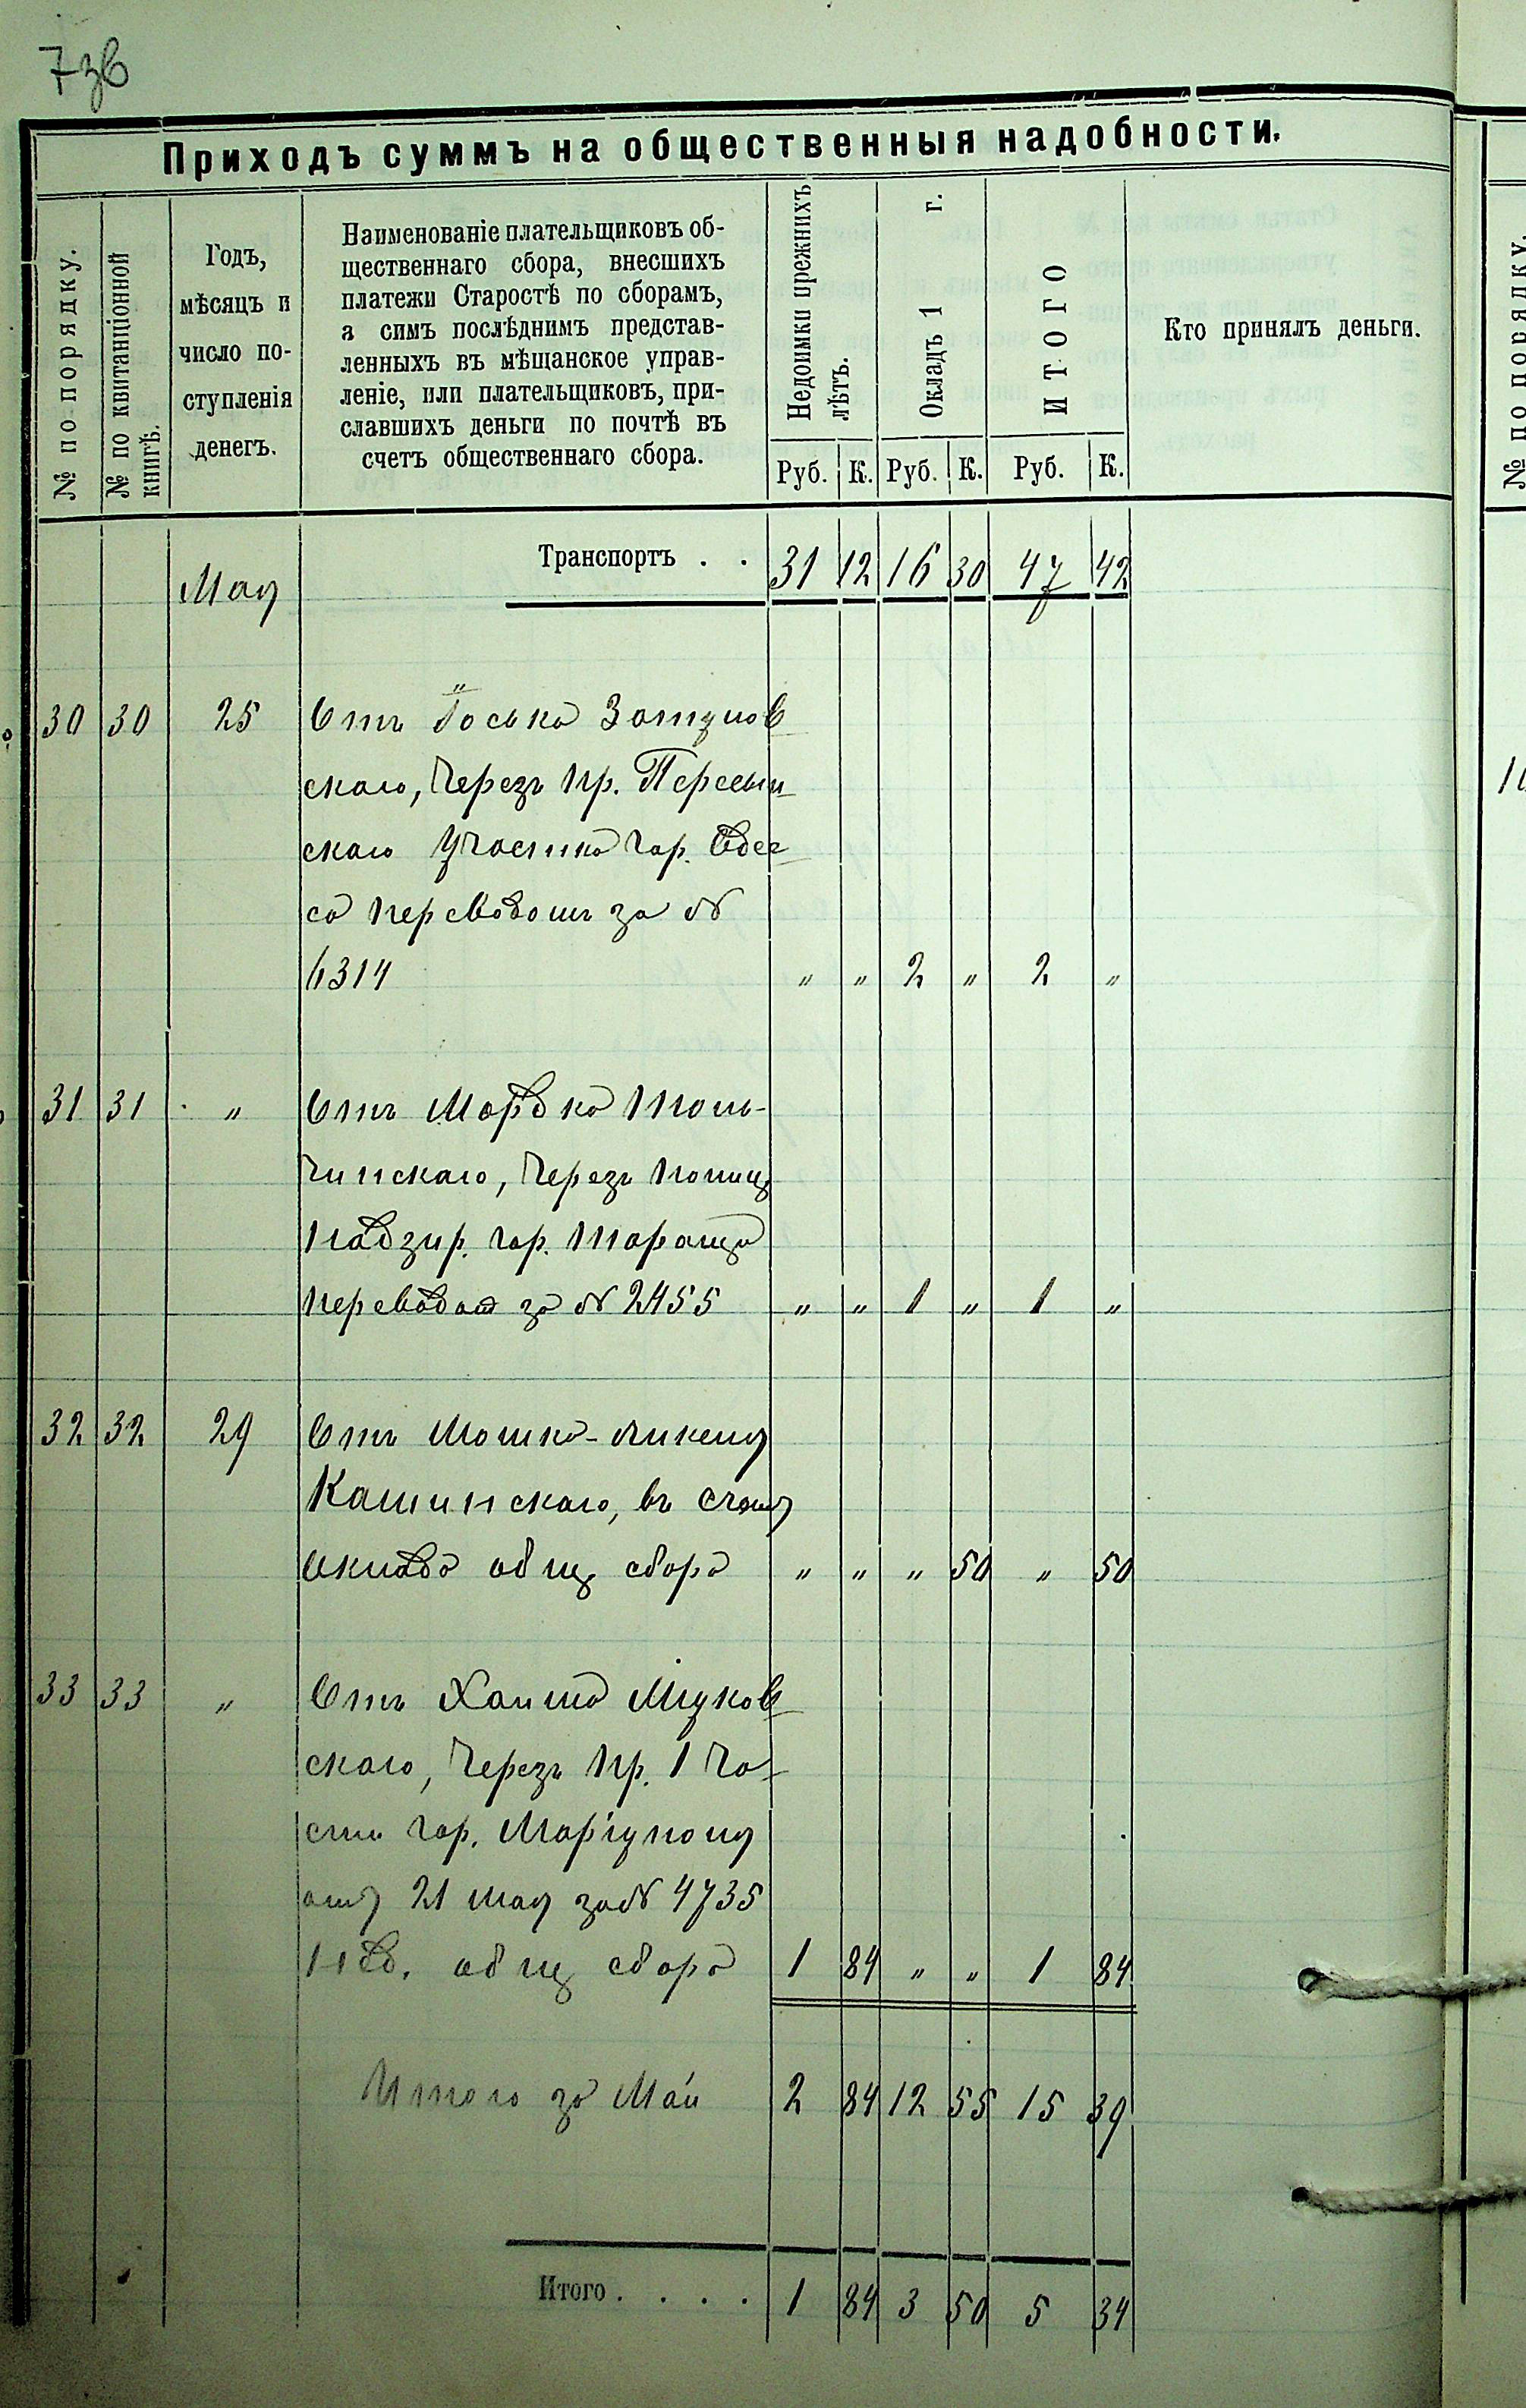 7зв
Приходъ суммъ на общественныя надобности.
№ по порядку.
№ по квитанціонной
книгѣ.
Годъ,
мѣсяцъ и
число по-
ступленія
денегъ.
Наименованіе плательщиковъ об-
щественнаго сбора, внесшихъ
платежи Старостѣ по сборамъ,
а симъ послѣднимъ представ-
ленныхъ въ мѣщанское управ-
леніе, или плательщиковъ, при-
славшихъ деньги по почтѣ въ
счетъ общественнаго сбора.
Недоимки прежнихъ
лѣтъ.
Окладъ 1 г.
ИТОГО
Руб. К. Руб. К. Руб. К.
Кто принялъ деньги.
№ по порядку.
Мая
Транспортъ . . 31 12 16 30 47 42
30 30 25 Отъ Іоська
скаго, Черезъ Пр. Пересып
скаго Участка гор. Одес
са переводомъ за №
6314 " " 2 " 2 "
31 31 " Отъ Мордка Таль-
чинскаго, Черезъ Полиц
Надзир. гор. Тараща
переводом за № 2455 " " 1 " 1 "
32 32 29 Отъ Мошка-
Кашинскаго, въ счетъ
Оклада общ сбора " " " 50 " 50
33 33 " Отъ Хаима
скаго, Черезъ Пр. 1 Ча-
сти гор. Маріуполя
отъ 21 мая за № 4735
Нед. общ сбора 1 84 " " 1 84
Итого за Май 2 84 12 55 15 39
Итого . . . . 1 84 3 50 5 34